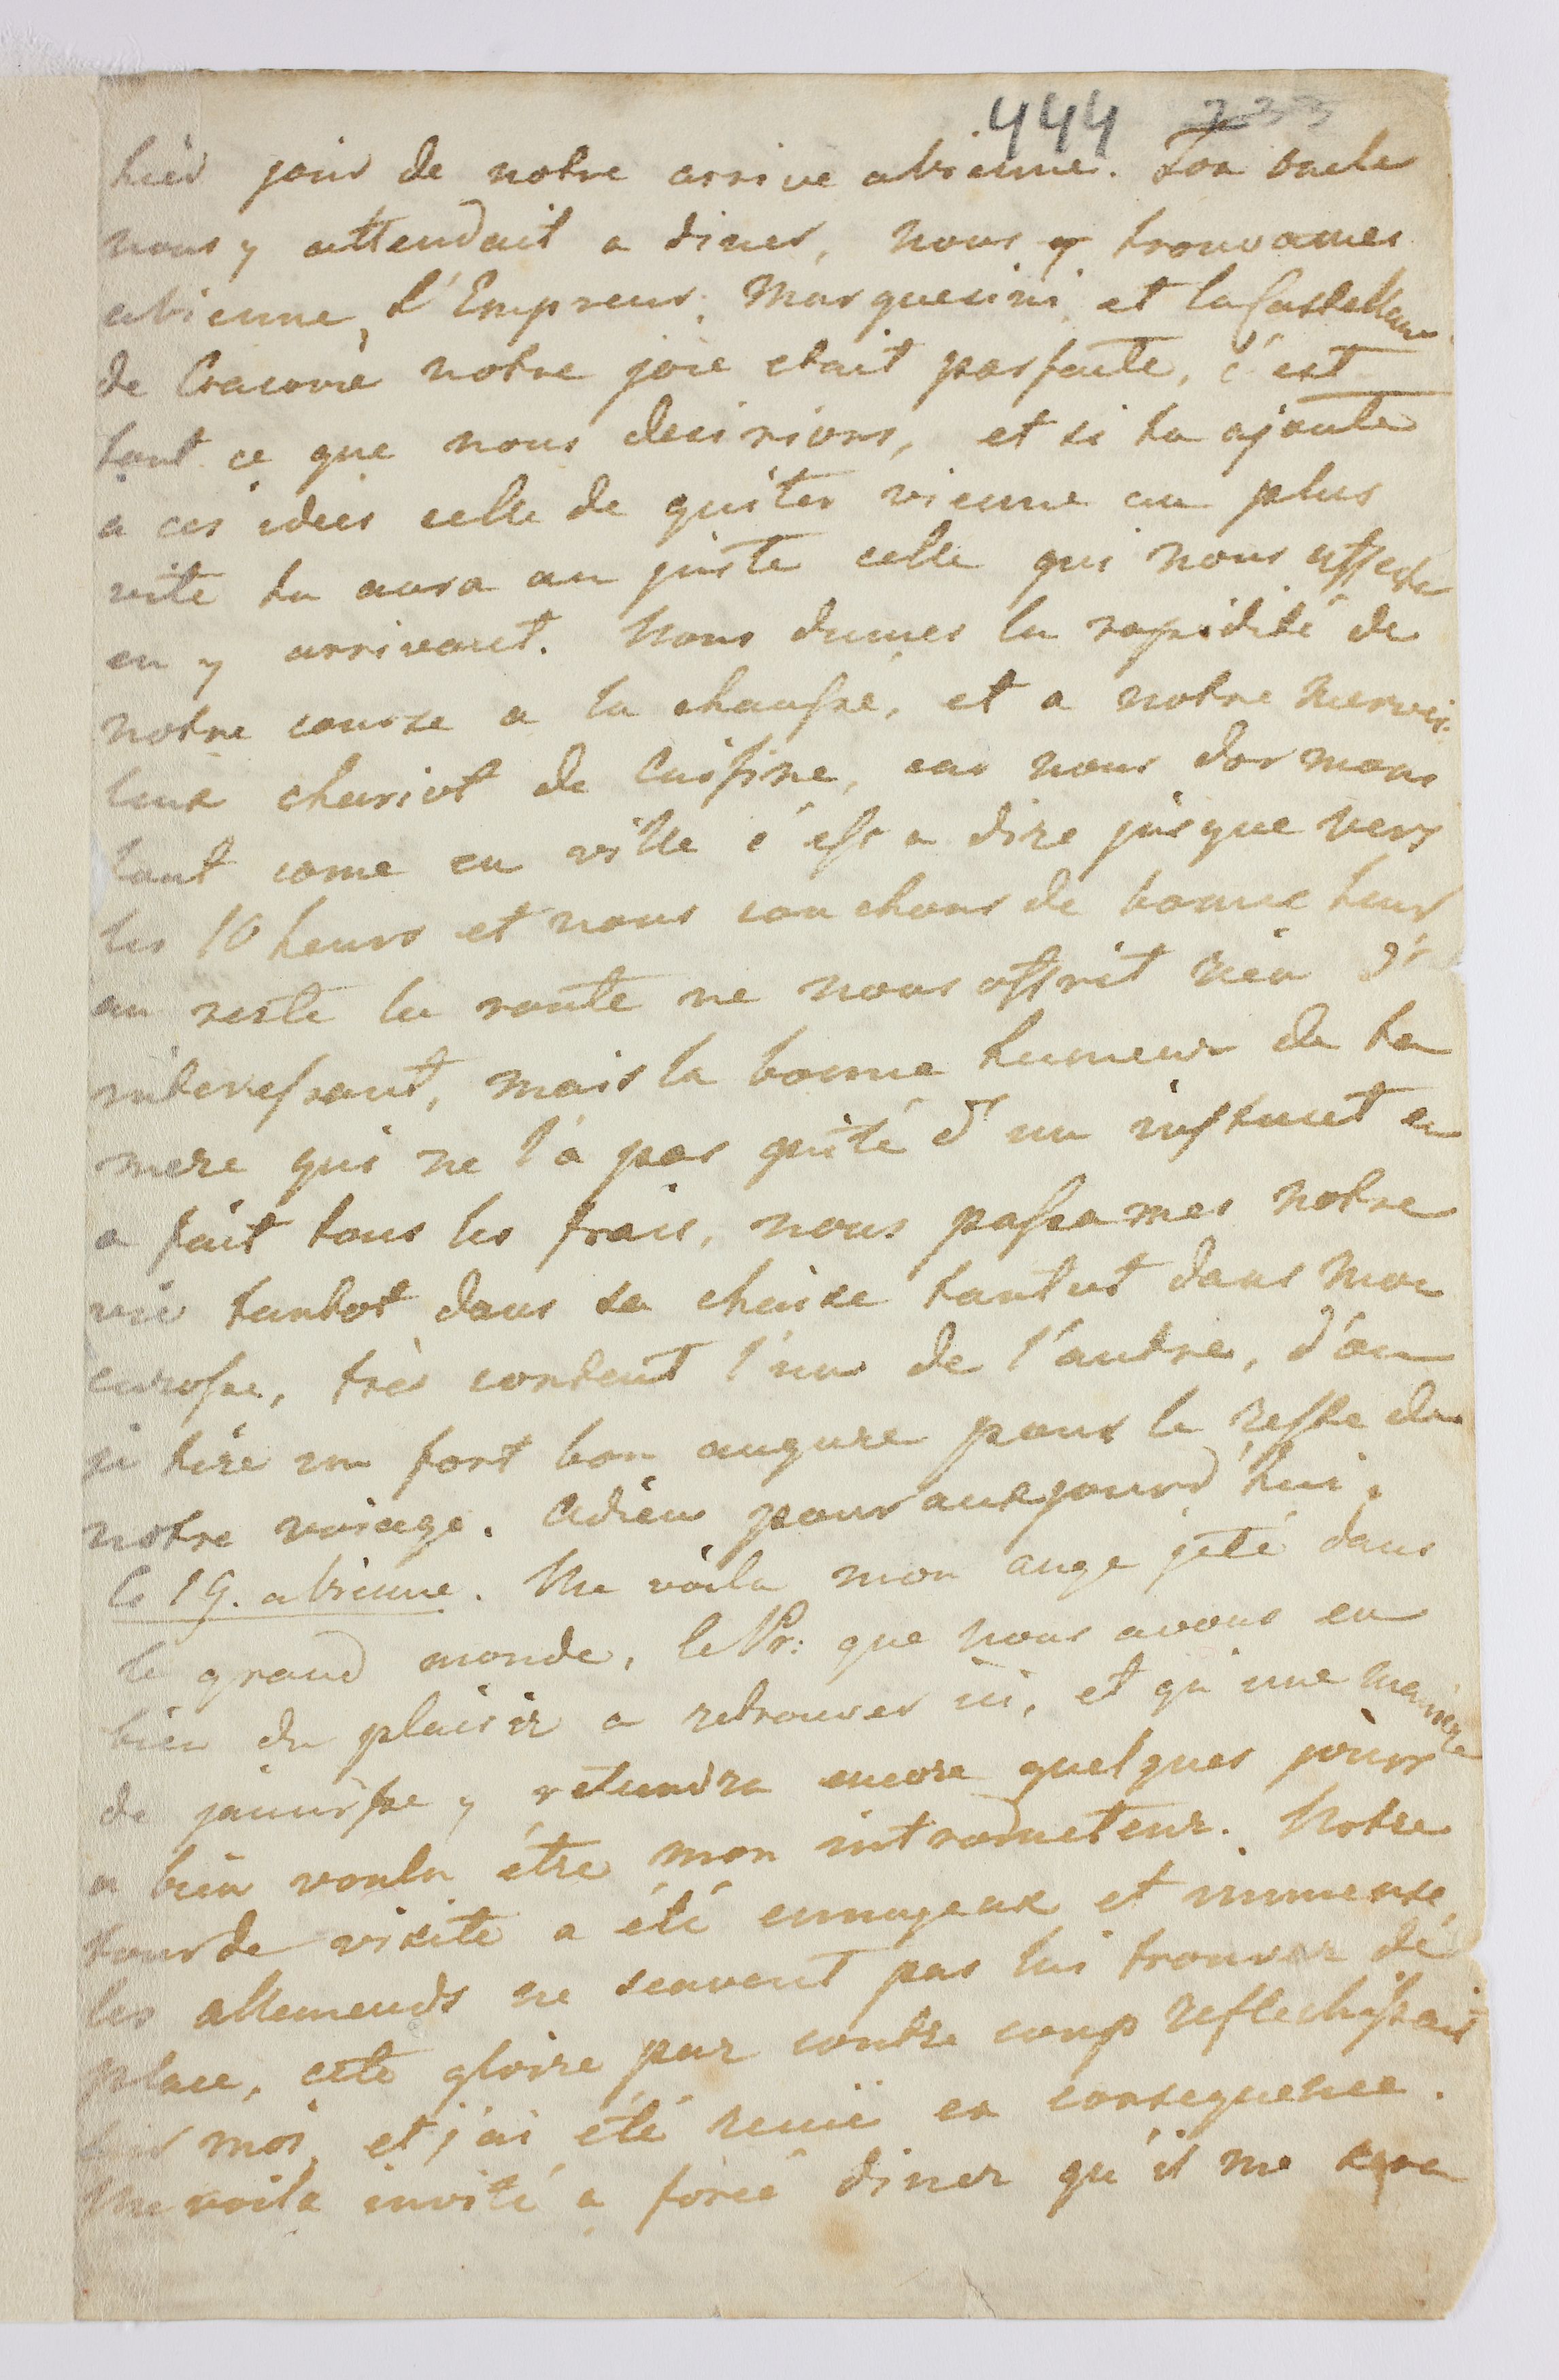 444 233
hier jour de notre arrivé a Vienne. Ton oncle
nous y attendait a diner, nous y trouvames
a Vienne, l'Empreur, Marquesini, et la Castellane
de Cracovie notre joie etait parfaite, c'est
tout ce que nous desirions, et si tu ajoute
a ces idées celle de quiter vienne au plus
vite tu aura au juste celle qui nous affecta
en y arrivant. Nous dumes la rapidité de
notre course a la chaussé, et a notre mervei-
leux chariot de cuisine, car nous dormons
tout come en ville c'est a dire jusque vers
les 10 heurs et nous couchons de bonne heur
au reste la route ne nous offrit rien d'
interessant, mais la bonne humeur de ta
mere qui ne l'a pas quité d'un instant en
a fait tous les frais, nous passames notre
vie tantot dans sa chaise tantot dans mon
carosse, très content l'un de l'autre, d'ou
je tire un fort bon augure pour le reste de
notre voiage. Adieu pour auxjourd'hui.
le 19. a Vienne. Me voila mon ange jeté dans
le grand monde, le Pr: que nous avons eu
bien du plaisir a retrouver ici, et qu'une maniere
de jaunisse y retiendra encore quelques jours
a bien voulu être mon introducteur. Notre
tour de visite a été ennuyeux et immense,
les allemends ne scavent pas lui trouver de
place, cete gloire par contre coup reflechissait
sur moi, et j'ai été reçu en consequence.
Me voila invité a force diner qu'il me